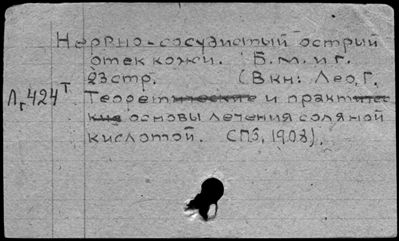 Нервно-сосудистый острый
отек кожи. Б.м.и г.
23стр. (В кн: Лео, Г.
Лг424Т Теоретические и практичес
кие основы лечения соляной
кислотой. СПЗ, 1908).